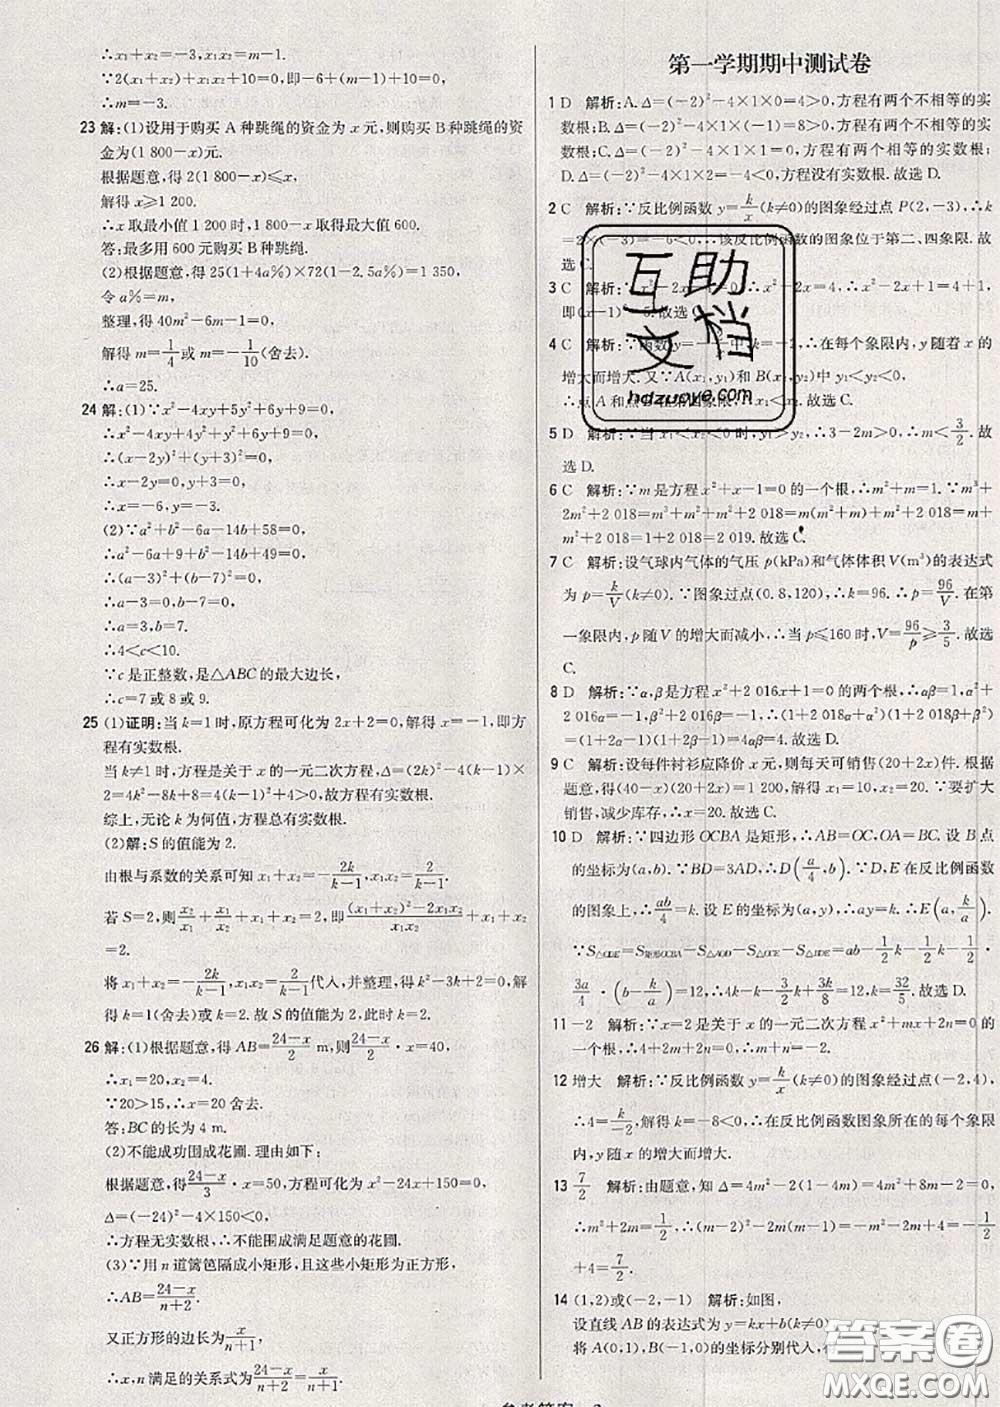 ∴x₁+x₂=-3,x₁x₂=m-1.
∵2(x₁+x₂)+x₁x₂+10=0,即-6+(m-1)+10=0,
∴m=-3.
23 解:(1)设用于购买 A 种跳绳的资金为 x 元,则购买 B 种跳绳的资
金为(1 800-x)元.
根据题意,得 2(1 800-x)≤x,
解得 x≥1 200.
∴x 取最小值 1 200 时,1 800-x 取得最大值 600.
答:最多用 600 元购买 B 种跳绳.
(2)根据题意,得 25(1+4a%)×72(1-2.5a%)=1 350,
令 a%=m,
整理,得 40m²-6m-1=0,
解得 m=1/4 或 m=-1/10(舍去).
∴a=25.
24 解:(1)∵x²-4xy+5y²+6y+9=0,
∴x²-4xy+4y²+y²+6y+9=0,
∴(x-2y)²+(y+3)²=0,
∴x-2y=0,y+3=0,
∴x=-6,y=-3.
(2)∵a²+b²-6a-14b+58=0,
∴a²-6a+9+b²-14b+49=0,
∴(a-3)²+(b-7)²=0,
∴a-3=0,b-7=0,
∴a=3,b=7.
∴4<c<10.
∵c 是正整数,是△ABC 的最大边长,
∴c=7 或 8 或 9.
25 (1)证明:当 k=1 时,原方程可化为 2x+2=0,解得 x=-1,即方
程有实数根.
当 k≠1 时,方程是关于 x 的一元二次方程,∴Δ=(2k)²-4(k-1)×
2=4k²-8k+8=4(k-1)²+4>0,故方程有实数根.
综上,无论 k 为何值,方程总有实数根.
(2)解:S 的值能为 2.
由根与系数的关系可知 x₁+x₂=-2k/(k-1),x₁x₂=2/(k-1).
若 S=2,则x₂/x₁+x₁/x₂+x₁+x₂=2,即((x₁+x₂)²-2x₁x₂)/(x₁x₂)+x₁+x₂
=2.
将 x₁+x₂=-2k/(k-1),x₁x₂=2/(k-1)代入,并整理,得 k²-3k+2=0,解
得 k=1(舍去)或 k=2.故 S 的值能为 2,此时 k=2.
26 解:(1)根据题意,得 AB=(24-x)/2 m,则(24-x)/2·x=40,
∴x₁=20,x₂=4.
∵20>15,∴x=20 舍去.
答:BC 的长为 4 m.
(2)不能成功围成花圃.理由如下:
根据题意,得(24-x)/3·x=50,方程可化为 x²-24x+150=0.
Δ=(-24)²-4×150<0,
∴方程无实数根,∴不能围成满足题意的花圃.
(3)∵用 n 道篱笆隔成小矩形,且这些小矩形为正方形,
∴AB=(24-x)/(n+2).
又正方形的边长为x/(n+1),
∴x,n 满足的关系式为(24-x)/(n+2)=x/(n+1).
第一学期期中测试卷
1 D 解析:A.Δ=(-2)²-4×1×0=4>0,方程有两个不相等的实
数根;B.Δ=(-2)²-4×1×(-1)=8>0,方程有两个不相等的实
数根;C.Δ=(-2)²-4×1×1=0,方程有两个相等的实数根;
D.Δ=(-2)²-4×1×2=-4<0,方程没有实数根.故选 D.
2 C 解析:∵反比例函数 y=k/x(k≠0)的图象经过点 P(2,-3),∴k
=2×(-3)=-6<0,∴该反比例函数的图象位于第二、四象限.故
选 C.
3 C 解析:∵x²-2x-4=0,∴x²-2x=4,∴x²-2x+1=4+1,
即(x-1)²=5.故选 C.
4 C 解析:∵函数 y=-2/x中,k=-2,∴在每个象限内,y 随着 x 的
增大而增大.又∵A(x₁,y₁)和 B(x₂,y₂)中 y₁<y₂,
∴点 A 和点 B 在第 象限,∴x₁<x₂.故选 C.
5 D 解析:∵当 x₁<x₂<0 时,y₁>y₂,∴3-2m>0,∴m<3/2.故
选 D.
6 C 解析:∵m 是方程 x²+x-1=0 的一个根,∴m²+m=1.∵m³+
2m²+2 018=m³+m²+m²+2 018=m(m²+m)+m²+2 018=m+
m²+2 018=1+2 018=2 019.故选 C.
7 C 解析:设气球内气体的气压 p(kPa)和气体体积 V(m³)的表达式
为 p=k/V(k≠0).∵图象过点(0.8,120),∴k=96.∴p=96/V.在第
一象限内,p 随 V 的增大而减小,∴当 p≤160 时,V=96/p≥3/5.故选
C.
8 D 解析:∵α,β是方程 x²+2 016x+1=0 的两个根,∴αβ=1,α²+
2 016α=-1,β²+2 016β=-1.∴(1+2 018α+α²)(1+2 018β+β²)=
(1+2α-1)(1+2β-1)=4αβ=4.故选 D.
9 C 解析:设每件衬衫应降价 x 元,则每天可销售(20+2x)件.根据
题意,得(40-x)(20+2x)=1 200,解得 x₁=10,x₂=20.∵要扩大
销售,减少库存,∴x=20.故选 C.
10 D 解析:∵四边形 OCBA 是矩形,∴AB=OC,OA=BC.设 B 点
的坐标为(a,b).∵BD=3AD,∴D(a/4,b).∵D,E 在反比例函数
的图象上,∴ab/4=k.设 E 的坐标为(a,y),∴ay=k.∴E(a,k/a).
∵S△ODE=S矩形OCBA-S△AOD-S△OCE-S△BDE=ab-1/2k-1/2k-1/2·
3a/4·(b-k/a)=12,∴4k-k-3k/2+3k/8=12,∴k=32/5.故选 D.
11 -2 解析:∵x=2 是关于 x 的一元二次方程 x²+mx+2n=0 的
一个根,∴4+2m+2n=0,∴m+n=-2.
12 增大 解析:∵反比例函数 y=k/x(k≠0)的图象经过点(-2,4),
∴4=k/-2,解得 k=-8<0,∴在反比例函数图象所在的每个象限
内,y 随 x 的增大而增大.
13 7/2 解析:由题意,知 Δ=4m²-2(1-4m)=4m²+8m-2=0,
∴m²+2m=1/2,∴(m-2)²-2m(m-1)=-m²-2m+4=-1/2
+4=7/2.
14 (1,2)或(-2,-1) 解析:如图,
设直线 AB 的表达式为 y=kx+b(k≠0).
将 A(0,1),B(-1,0)的坐标分别代入,
互助
文档
hdzuoye.com
答案圈
MXQE.COM
参考答案